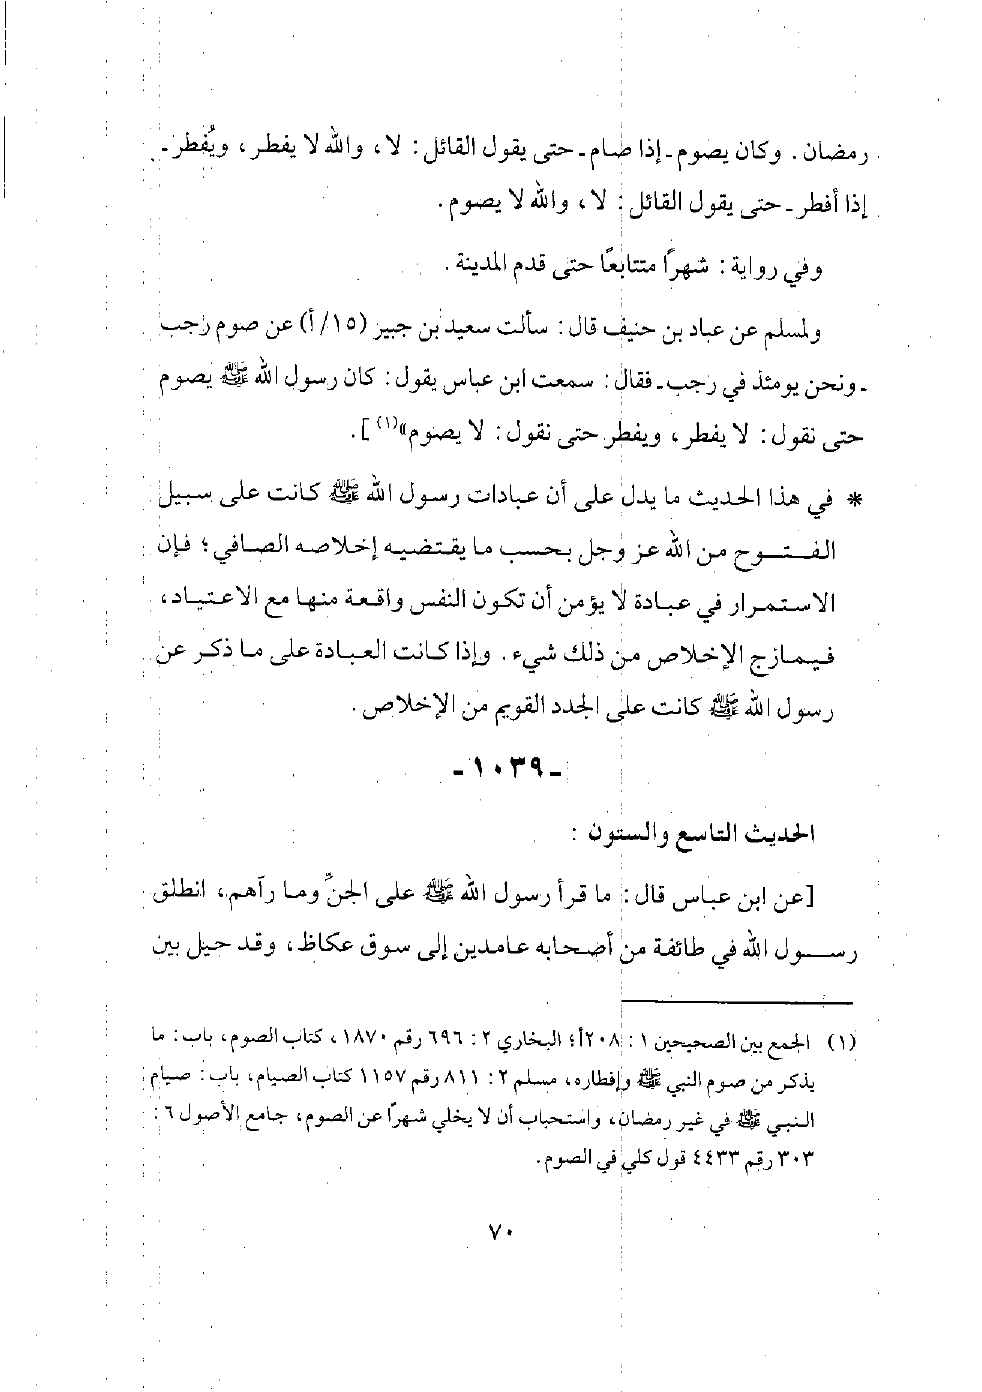 رمضان. وكان يصوم ـ إذا صام ـ حتى يقول القائل: لا، والله لا يفطر، ويُفطر ـ
إذا أفطر ـ حتى يقول القائل: لا، والله لا يصوم.
وفي رواية: شهرًا متتابعًا حتى قدم المدينة.
ولمسلم عن عباد بن حنيف قال: سألت سعيد بن جبير (١٥/أ) عن صوم رجب
ـ ونحن يومئذ في رجب ـ فقال: سمعت ابن عباس يقول: كان رسول الله ﷺ يصوم
حتى نقول: لا يفطر، ويفطر حتى نقول: لا يصوم»(١)].
* في هذا الحديث ما يدل على أن عبادات رسول الله ﷺ كانت على سبيل
الفتوح من الله عز وجل بحسب ما يقتضيه إخلاصه الصافي؛ فإن
الاستمرار في عبادة لا يؤمن أن تكون النفس واقعة منها مع الاعتياد،
فيمازج الإخلاص من ذلك شيء. وإذا كانت العبادة على ما ذكر عن
رسول الله ﷺ كانت على الجدد القويم من الإخلاص.
ـ ١٠٣٩ ـ
الحديث التاسع والستون:
[عن ابن عباس قال: ما قرأ رسول الله ﷺ على الجنِّ وما رآهم، انطلق
رسول الله في طائفة من أصحابه عامدين إلى سوق عكاظ، وقد حيل بين
(١) الجمع بين الصحيحين ١: ٢٠٨أ؛ البخاري ٢: ٦٩٦ رقم ١٨٧٠، كتاب الصوم، باب: ما
يذكر من صوم النبي ﷺ وإفطاره، مسلم ٢: ٨١١ رقم ١١٥٧ كتاب الصيام، باب: صيام
النبي ﷺ في غير رمضان، واستحباب أن لا يخلي شهرًا عن الصوم، جامع الأصول ٦:
٣٠٣ رقم ٤٤٣٣ قول كلي في الصوم.
٧٠